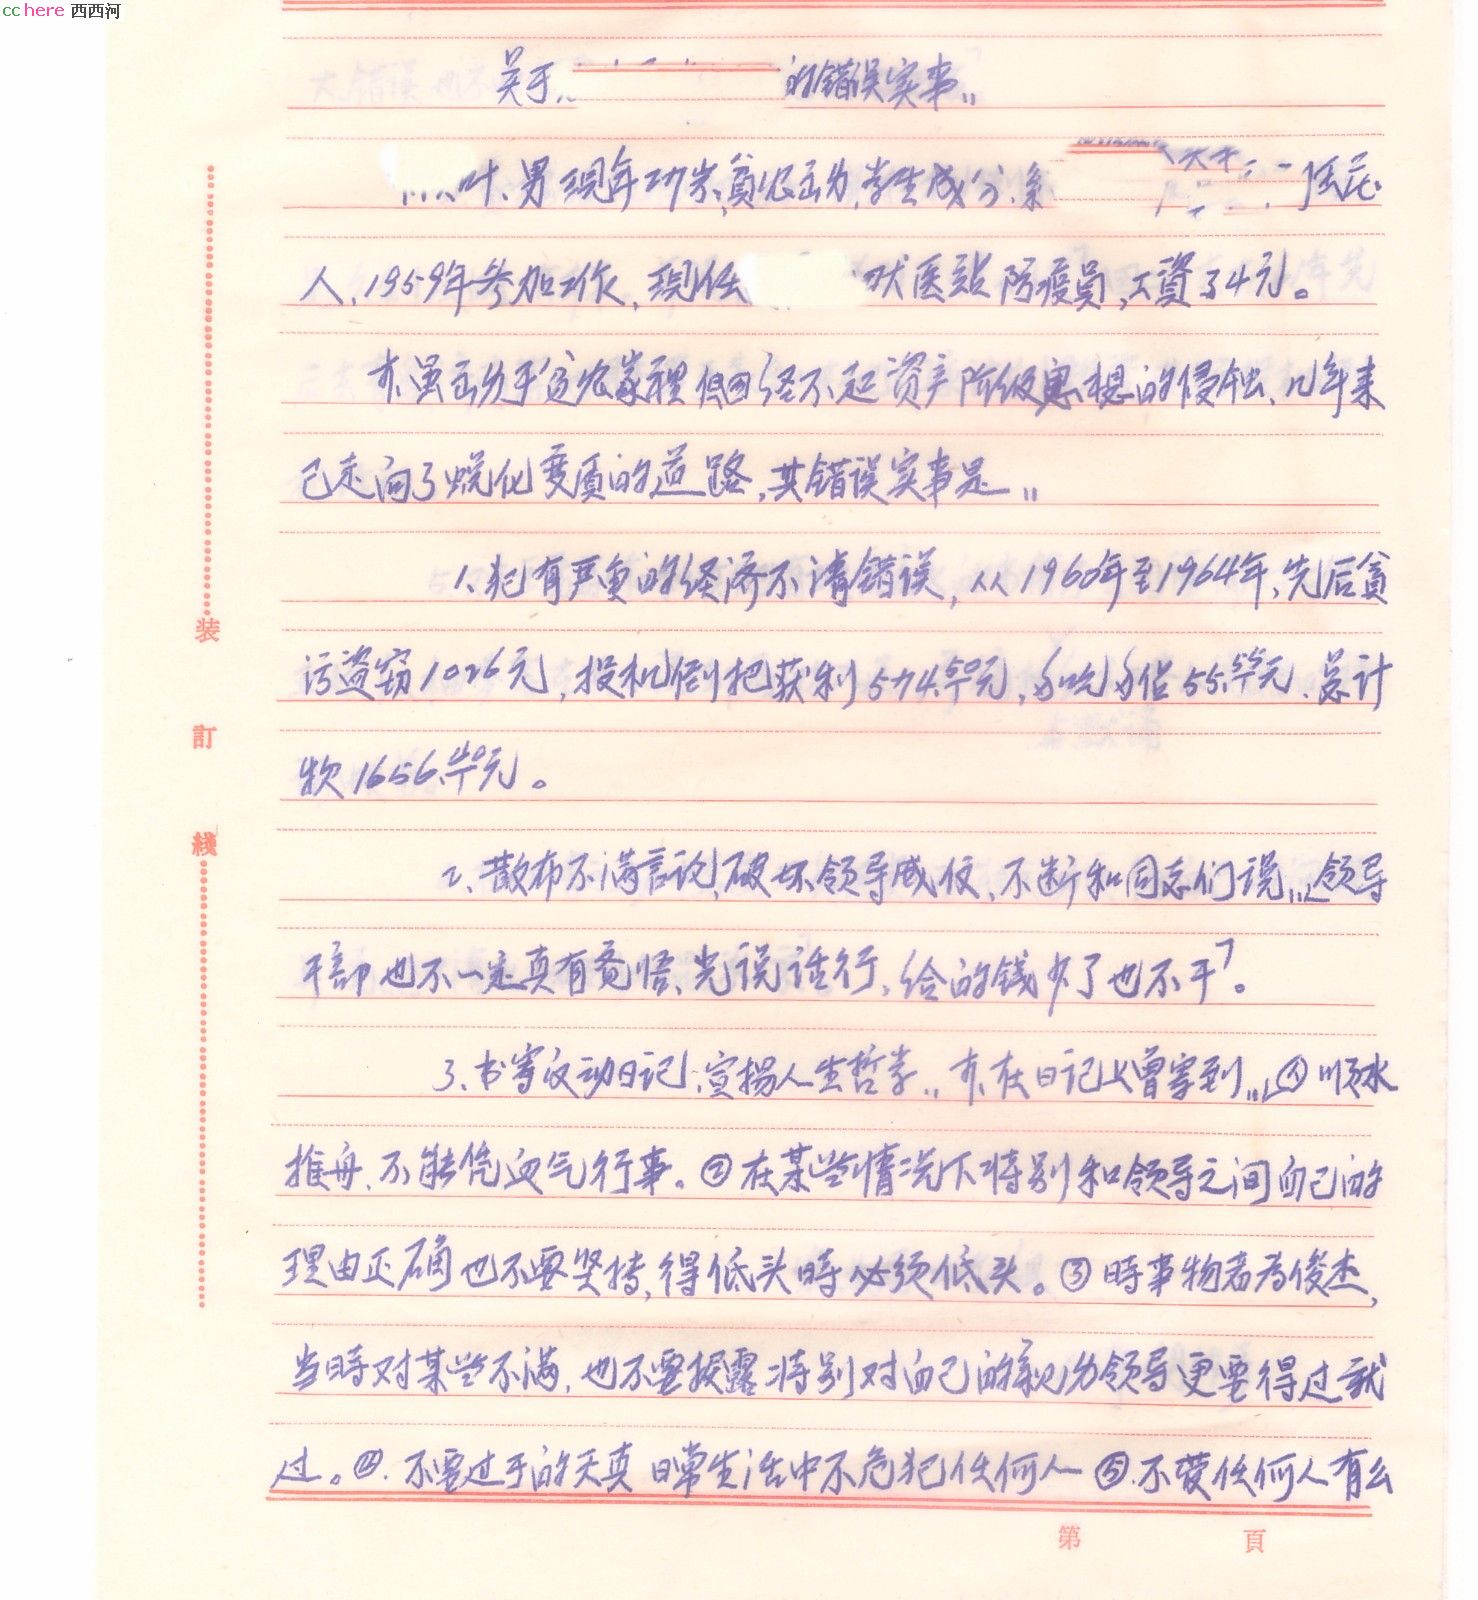 cchere 西西河
关于 的错误实事..
叶、男现年27岁、贫农出身,学生成分、系
人,1959年参加工作,现任 兽医站防疫员,工资34元。
虽出身于贫农家裡但因经不起资产阶级思想的侵蚀、几年来
己走向了蜕化变质的道路,其错误实事是..
1、犯有严重的经济不清错误,从1960年至1964年,先后贪
污盗窃1026元,投机倒把获利574.50元,多吃多佔55.55元.总计
欠1656.40元。
2、散布不满言论,破坏领导威仪、不断和同志们说..「领导
干部也不一定真有觉悟、光说话行,给的钱少了也不干」。
3、书写反动日记、宣揚人生哲学..在日记上曾写到..「①顺水
推舟、不能凭血气行事。②在某些情况下特别和领导之间自己的
理由正确也不要坚持,得低头時必须低头。③時事物者为俊杰,
当時对某些不满,也不要披露特别对自己的亲幼领导更要得过就
过。④.不要过于的天真日常生活中不危犯任何人⑤.不管任何人有么
装
訂
綫
第 頁